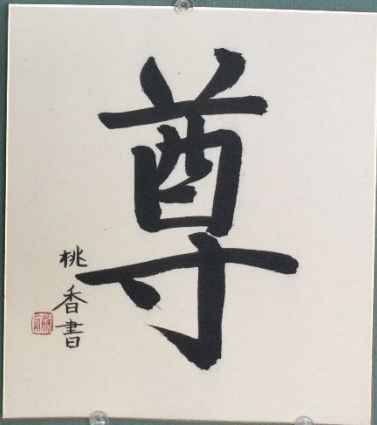 尊
桃香書